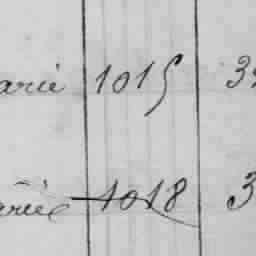 arié 1015 3
ariée 1018 3